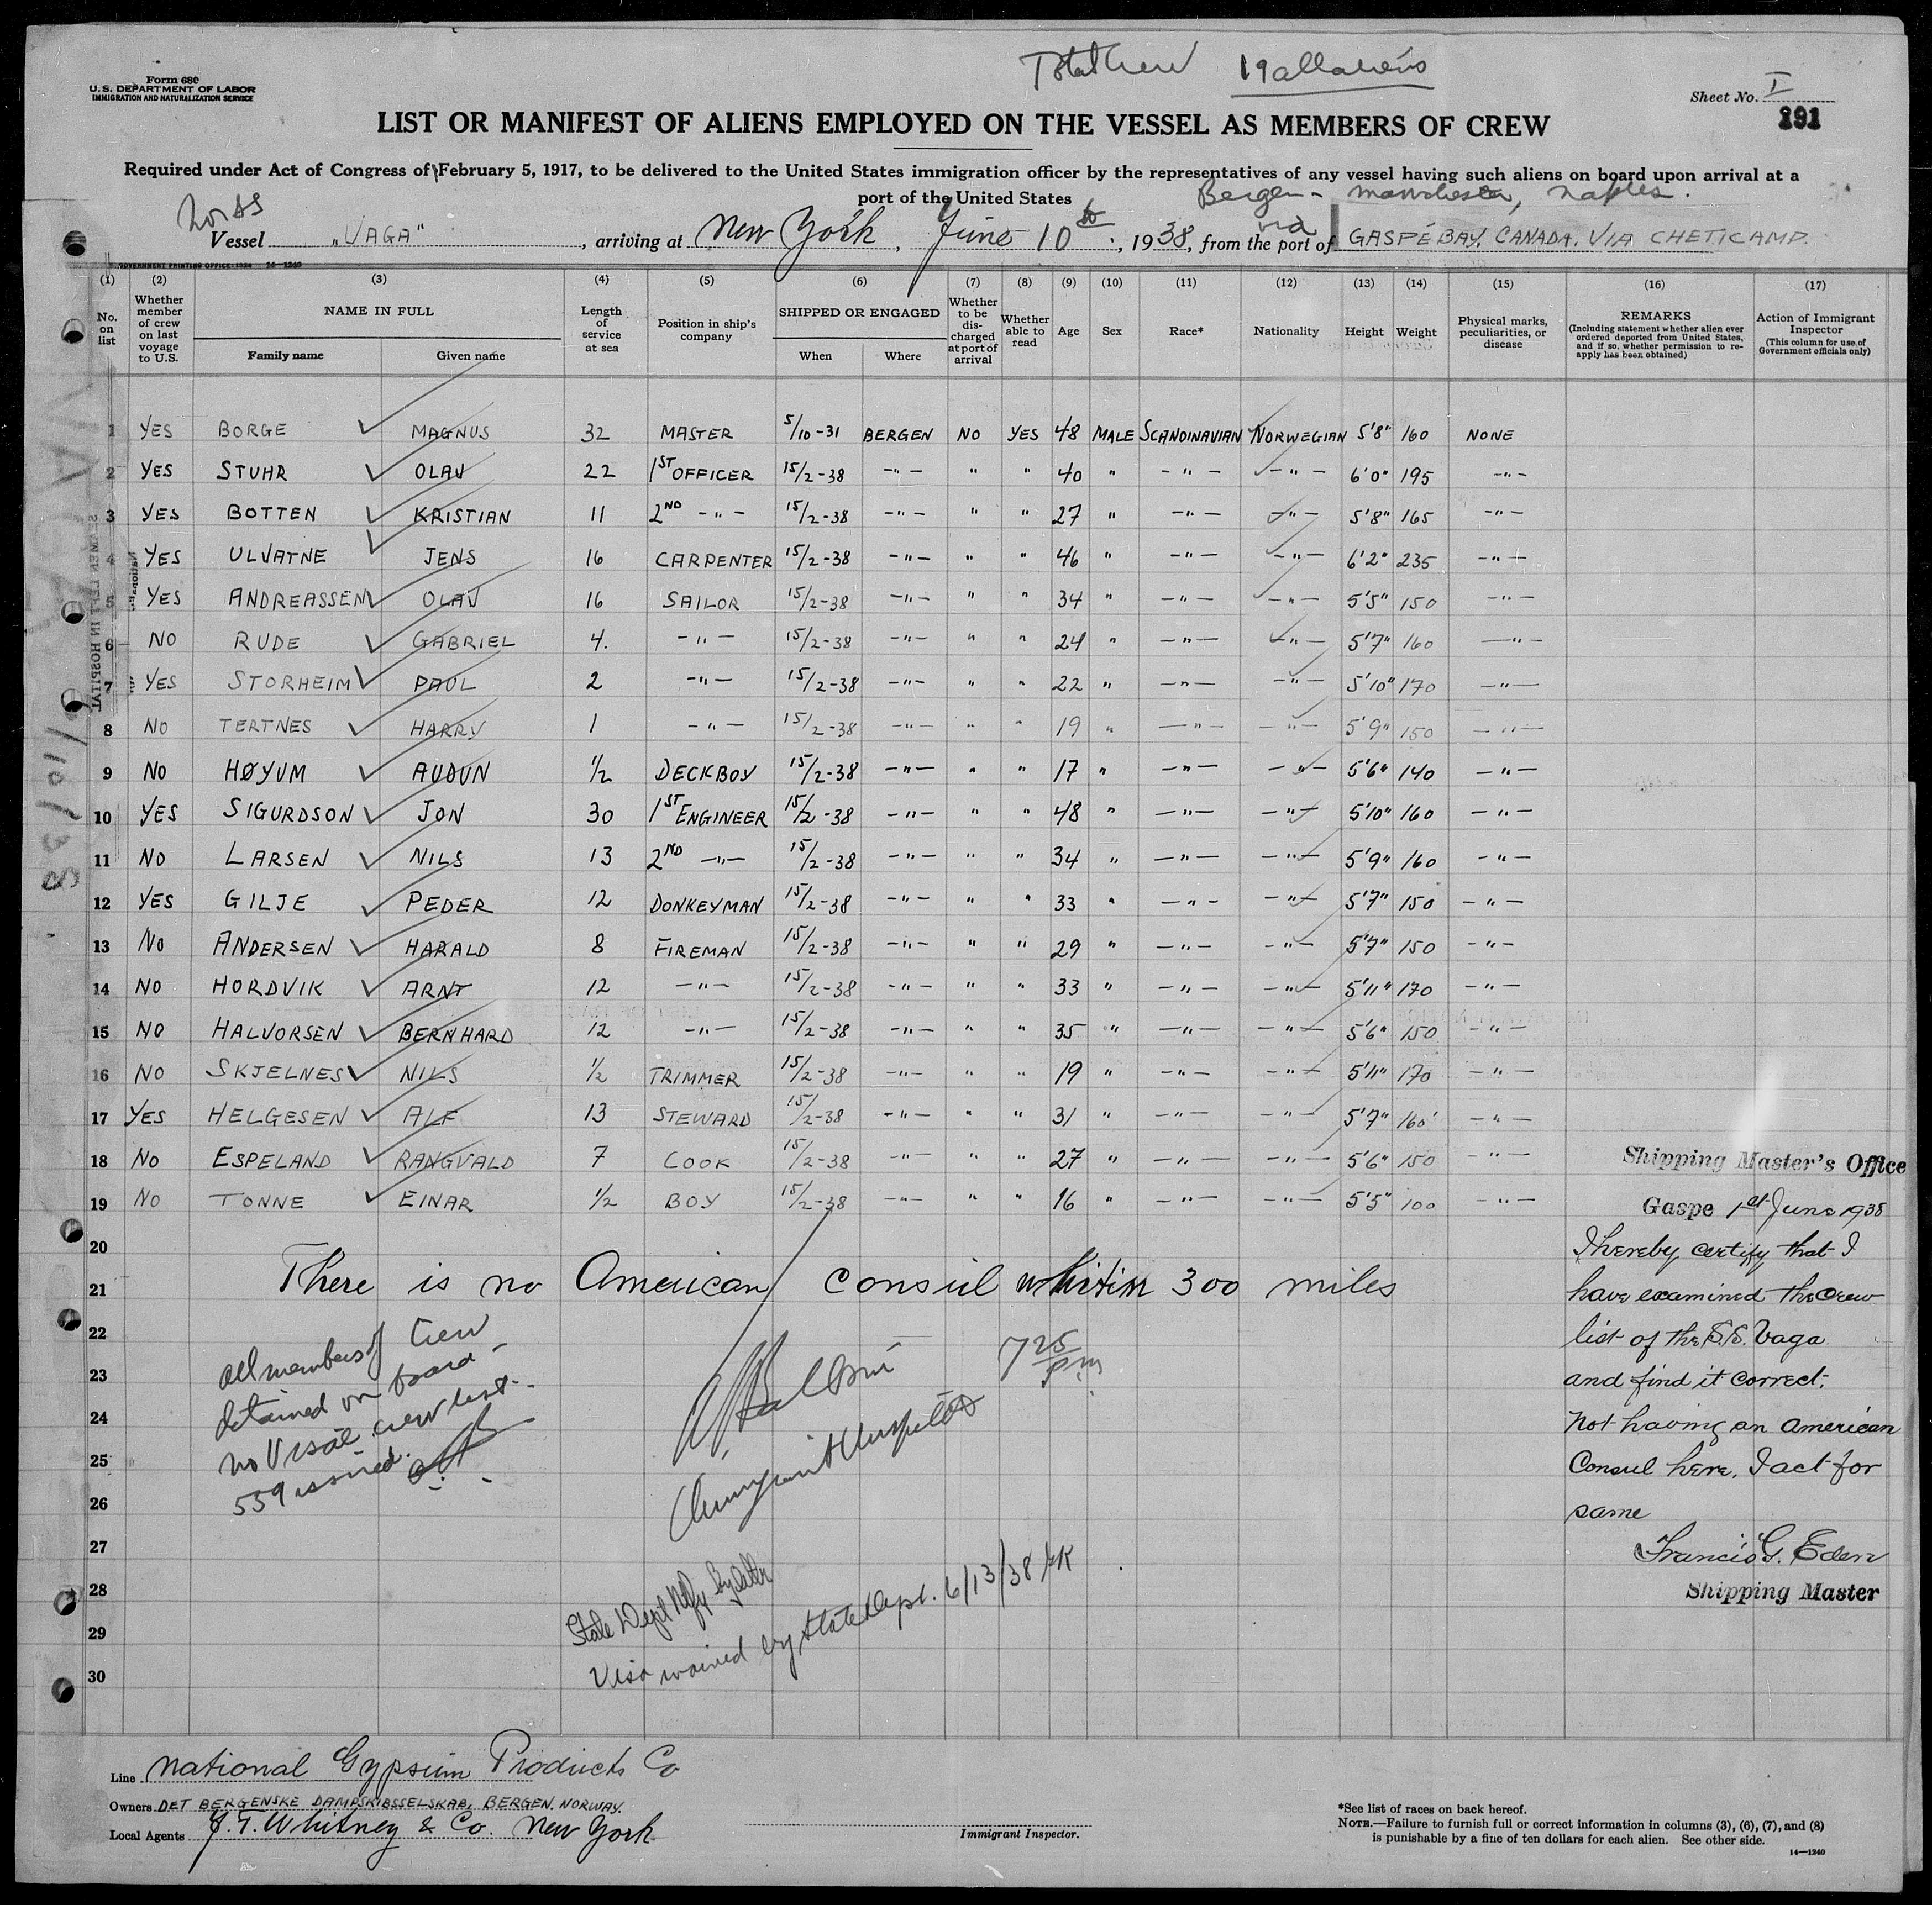 Total Crew 19 all aliens
Form 680
U.S. DEPARTMENT OF LABOR
IMMIGRATION AND NATURALIZATION SERVICE
Sheet No. I
191
LIST OR MANIFEST OF ALIENS EMPLOYED ON THE VESSEL AS MEMBERS OF CREW
Required under Act of Congress of February 5, 1917, to be delivered to the United States immigration officer by the representatives of any vessel having such aliens on board upon arrival at a
port of the United States
Bergen - Manchester, Naples.
Nor SS
via
Vessel "VAGA", arriving at New York, June 10th, 1938, from the port of GASPÉ BAY, CANADA. VIA CHETICAMP.
GOVERNMENT PRINTING OFFICE: 14—1240
(1) (2) (3) (4) (5) (6) (7) (8) (9) (10) (11) (12) (13) (14) (15) (16) (17)
No. on list Whether member of crew on last voyage to U.S. NAME IN FULL Family name Given name Length of service at sea Position in ship's company SHIPPED OR ENGAGED When Where Whether to be discharged at port of arrival Whether able to read Age Sex Race* Nationality Height Weight Physical marks, peculiarities, or disease REMARKS (Including statement whether alien ever ordered deported from United States, and if so, whether permission to re-apply has been obtained) Action of Immigrant Inspector (This column for use of Government officials only)
1 YES BORGE MAGNUS 32 MASTER 5/10-31 BERGEN NO YES 48 MALE SCANDINAVIAN NORWEGIAN 5'8" 160 NONE
2 YES STUHR OLAV 22 1ST OFFICER 15/2-38 -"- " " 40 " -"- -"- 6'0" 195 -"-
3 YES BOTTEN KRISTIAN 11 2ND -"- 15/2-38 -"- " " 27 " -"- -"- 5'8" 165 -"-
4 YES ULVATNE JENS 16 CARPENTER 15/2-38 -"- " " 46 " -"- -"- 6'2" 235 -"-
5 YES ANDREASSEN OLAV 16 SAILOR 15/2-38 -"- " " 34 " -"- -"- 5'5" 150 -"-
6 NO RUDE GABRIEL 4. -"- 15/2-38 -"- " " 24 " -"- -"- 5'7" 160 -"-
7 YES STORHEIM PAUL 2 -"- 15/2-38 -"- " " 22 " -"- -"- 5'10" 170 -"-
8 NO TERTNES HARRY 1 -"- 15/2-38 -"- " " 19 " -"- -"- 5'9" 150 -"-
9 NO HØYUM AUDUN 1/2 DECKBOY 15/2-38 -"- " " 17 " -"- -"- 5'6" 140 -"-
10 YES SIGURDSON JON 30 1ST ENGINEER 15/2-38 -"- " " 48 " -"- -"- 5'10" 160 -"-
11 NO LARSEN NILS 13 2ND -"- 15/2-38 -"- " " 34 " -"- -"- 5'9" 160 -"-
12 YES GILJE PEDER 12 DONKEYMAN 15/2-38 -"- " " 33 " -"- -"- 5'7" 150 -"-
13 NO ANDERSEN HARALD 8 FIREMAN 15/2-38 -"- " " 29 " -"- -"- 5'7" 150 -"-
14 NO HORDVIK ARNT 12 -"- 15/2-38 -"- " " 33 " -"- -"- 5'11" 170 -"-
15 NO HALVORSEN BERNHARD 12 -"- 15/2-38 -"- " " 35 " -"- -"- 5'6" 150 -"-
16 NO SKJELNES NILS 1/2 TRIMMER 15/2-38 -"- " " 19 " -"- -"- 5'11" 170 -"-
17 YES HELGESEN ALF 13 STEWARD 15/2-38 -"- " " 31 " -"- -"- 5'7" 160 -"-
18 NO ESPELAND RANGVALD 7 COOK 15/2-38 -"- " " 27 " -"- -"- 5'6" 150 -"-
19 NO TONNE EINAR 1/2 BOY 15/2-38 -"- " " 16 " -"- -"- 5'5" 100 -"-
20
21
22
23
24
25
26
27
28
29
30
There is no American consul whitin 300 miles
all members of Crew
detained on board -
no Visae crew list -
559 issued.
7 25 pm
Immigrant Inspector
State Dept
Visa waived by State Dept. 6/13/38
Shipping Master's Office
Gaspe 1st June 1938
I hereby certify that I
have examined the crew
list of the S.S. Vaga
and find it correct.
Not having an American
Consul here, I act for
same
Francis G. Eden
Shipping Master
Line National Gypsum Products Co
Owners DET BERGENSKE DAMPSKIBSSELSKAB, BERGEN. NORWAY.
Local Agents J. F. Whitney & Co. New York
Immigrant Inspector.
*See list of races on back hereof.
NOTE.—Failure to furnish full or correct information in columns (3), (6), (7), and (8)
is punishable by a fine of ten dollars for each alien. See other side.
14—1240